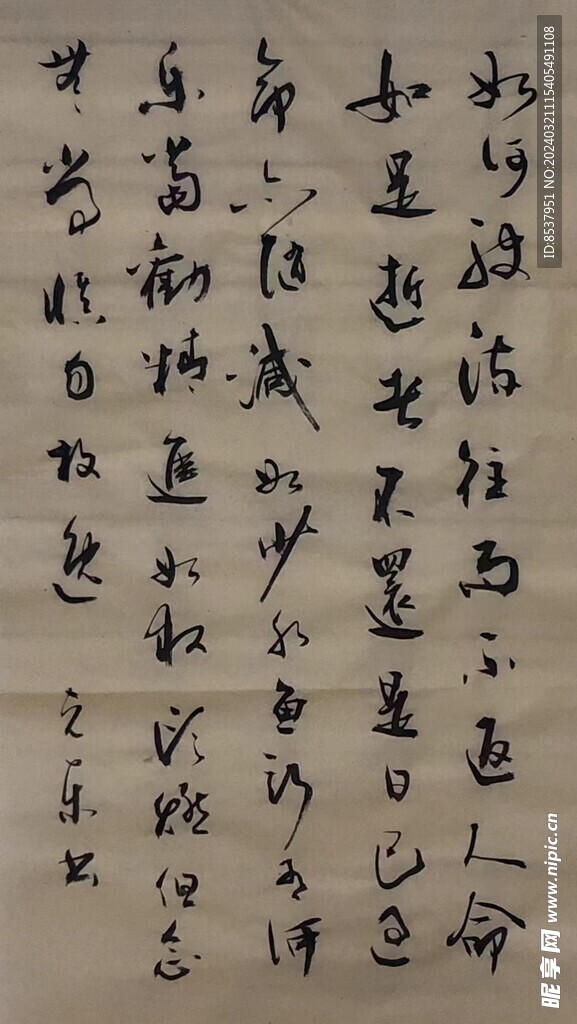 如河驶流往而不返人命
如是逝者不还是日已过
命亦随减如少水鱼斯有何
乐当勤精進如救头燃但念
無常慎自放逸
克东书
ID:8537951 NO:20240321115405491108
昵享网 www.nipic.cn